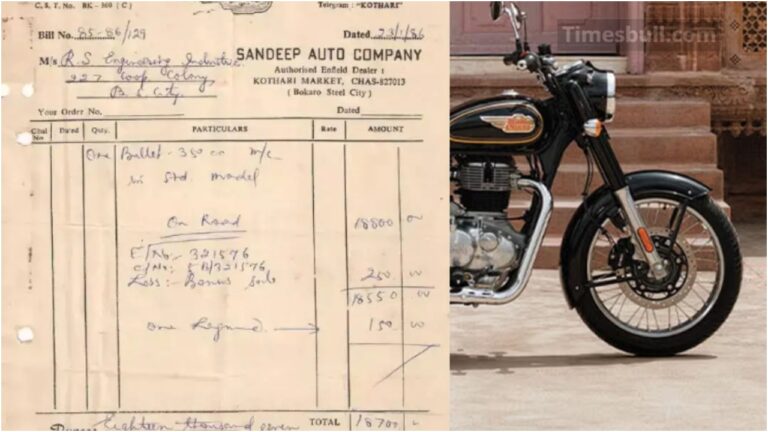 C. S. T. No. BK - 500 ( C )
Telegram : "KOTHARI"
Bill No. 85-86/129
Dated 23/1/86
SANDEEP AUTO COMPANY
M/s R.S. Engineering
Authorised Enfield Dealer :
227 Coop Colony
KOTHARI MARKET, CHAS-827013
B.S. City
( Bokaro Steel City )
Your Order No.
Dated
No. Dated Qty. PARTICULARS Rate AMOUNT
One Bullet - 350 cc m/c
in Std. Model
On Road 18800 00
E/No:- 321576
C/No:- 5B/321576
Less:- Bonus 250 00
18550 00
One 150 00
Eighteen thousand seven TOTAL 18700 -
Timesbull.com